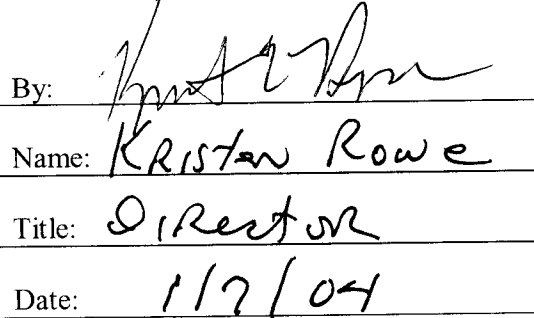 By:
Name: Kristen Rowe
Title: Director
Date: 1/7/04